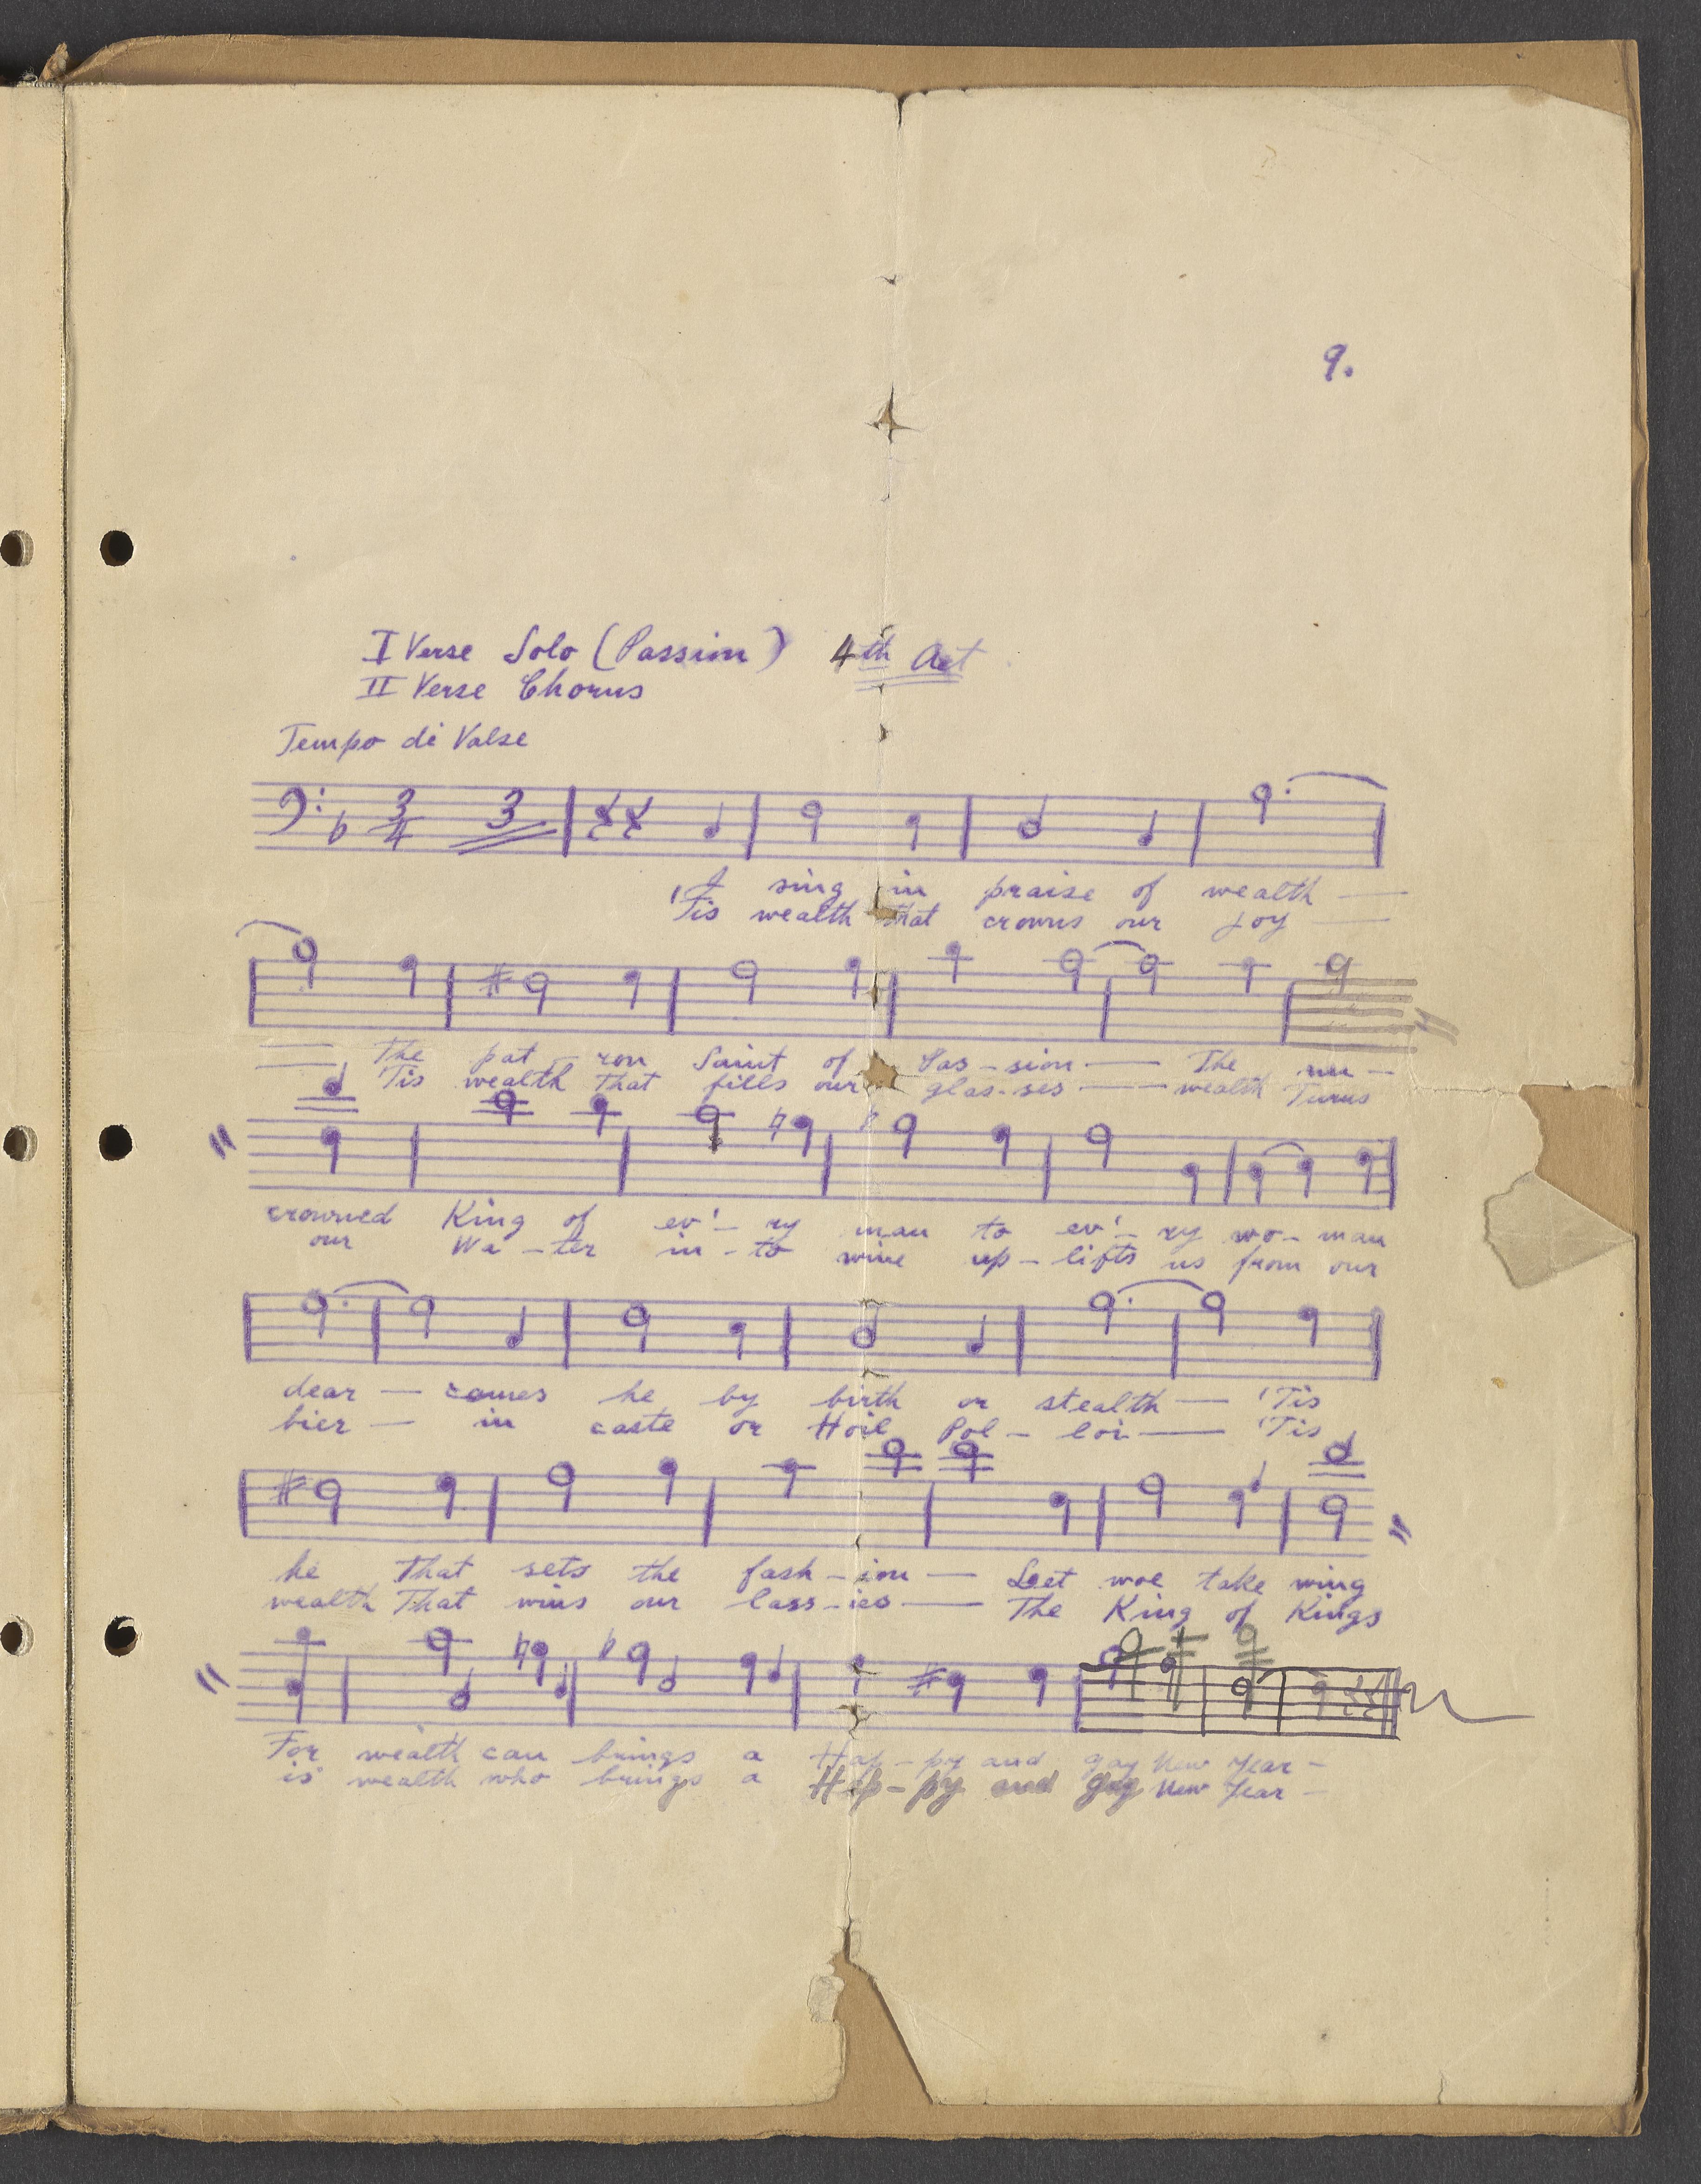 9.
I Verse Solo (Passion) 4th Act
II Verse Chorus
Tempo di Valse
3 4 3
I sing in praise of wealth —
'Tis wealth that crowns our joy —
— the pat - ron Saint of Pas - sion — The un -
'Tis wealth that fills our glas - ses — wealth Turns
crowned King of ev' - ry man to ev' - ry wo - man
our Wa - ter in - to wine up - lifts us from our
dear — comes he by birth or stealth — 'Tis
bier — in caste or Hoil Pol - loi — 'Tis
he that sets the fash - ion — Let woe take wing
wealth That wins our lass - ies — The King of Kings
For wealth can brings a Hap - py and gay New Year -
is wealth who brings a Hap - py and gay New Year -